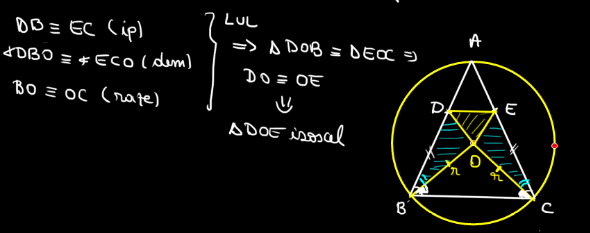 DB ≡ EC (ip)
∢DBO ≡ ∢ECO (dem)
BO ≡ OC (raze)
LUL
=> Δ DOB ≡ ΔEOC =>
DO ≡ OE
⇓
ΔDOE isoscel
A
D E
O
r r
B C